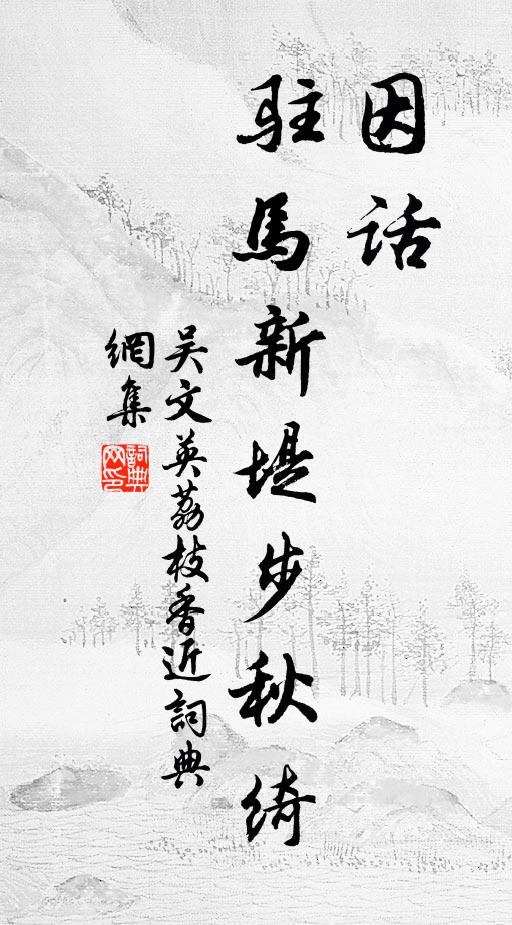 因话
驻馬新堤步秋绮
吴文英荔枝香近詞典
網集
詞典
网印